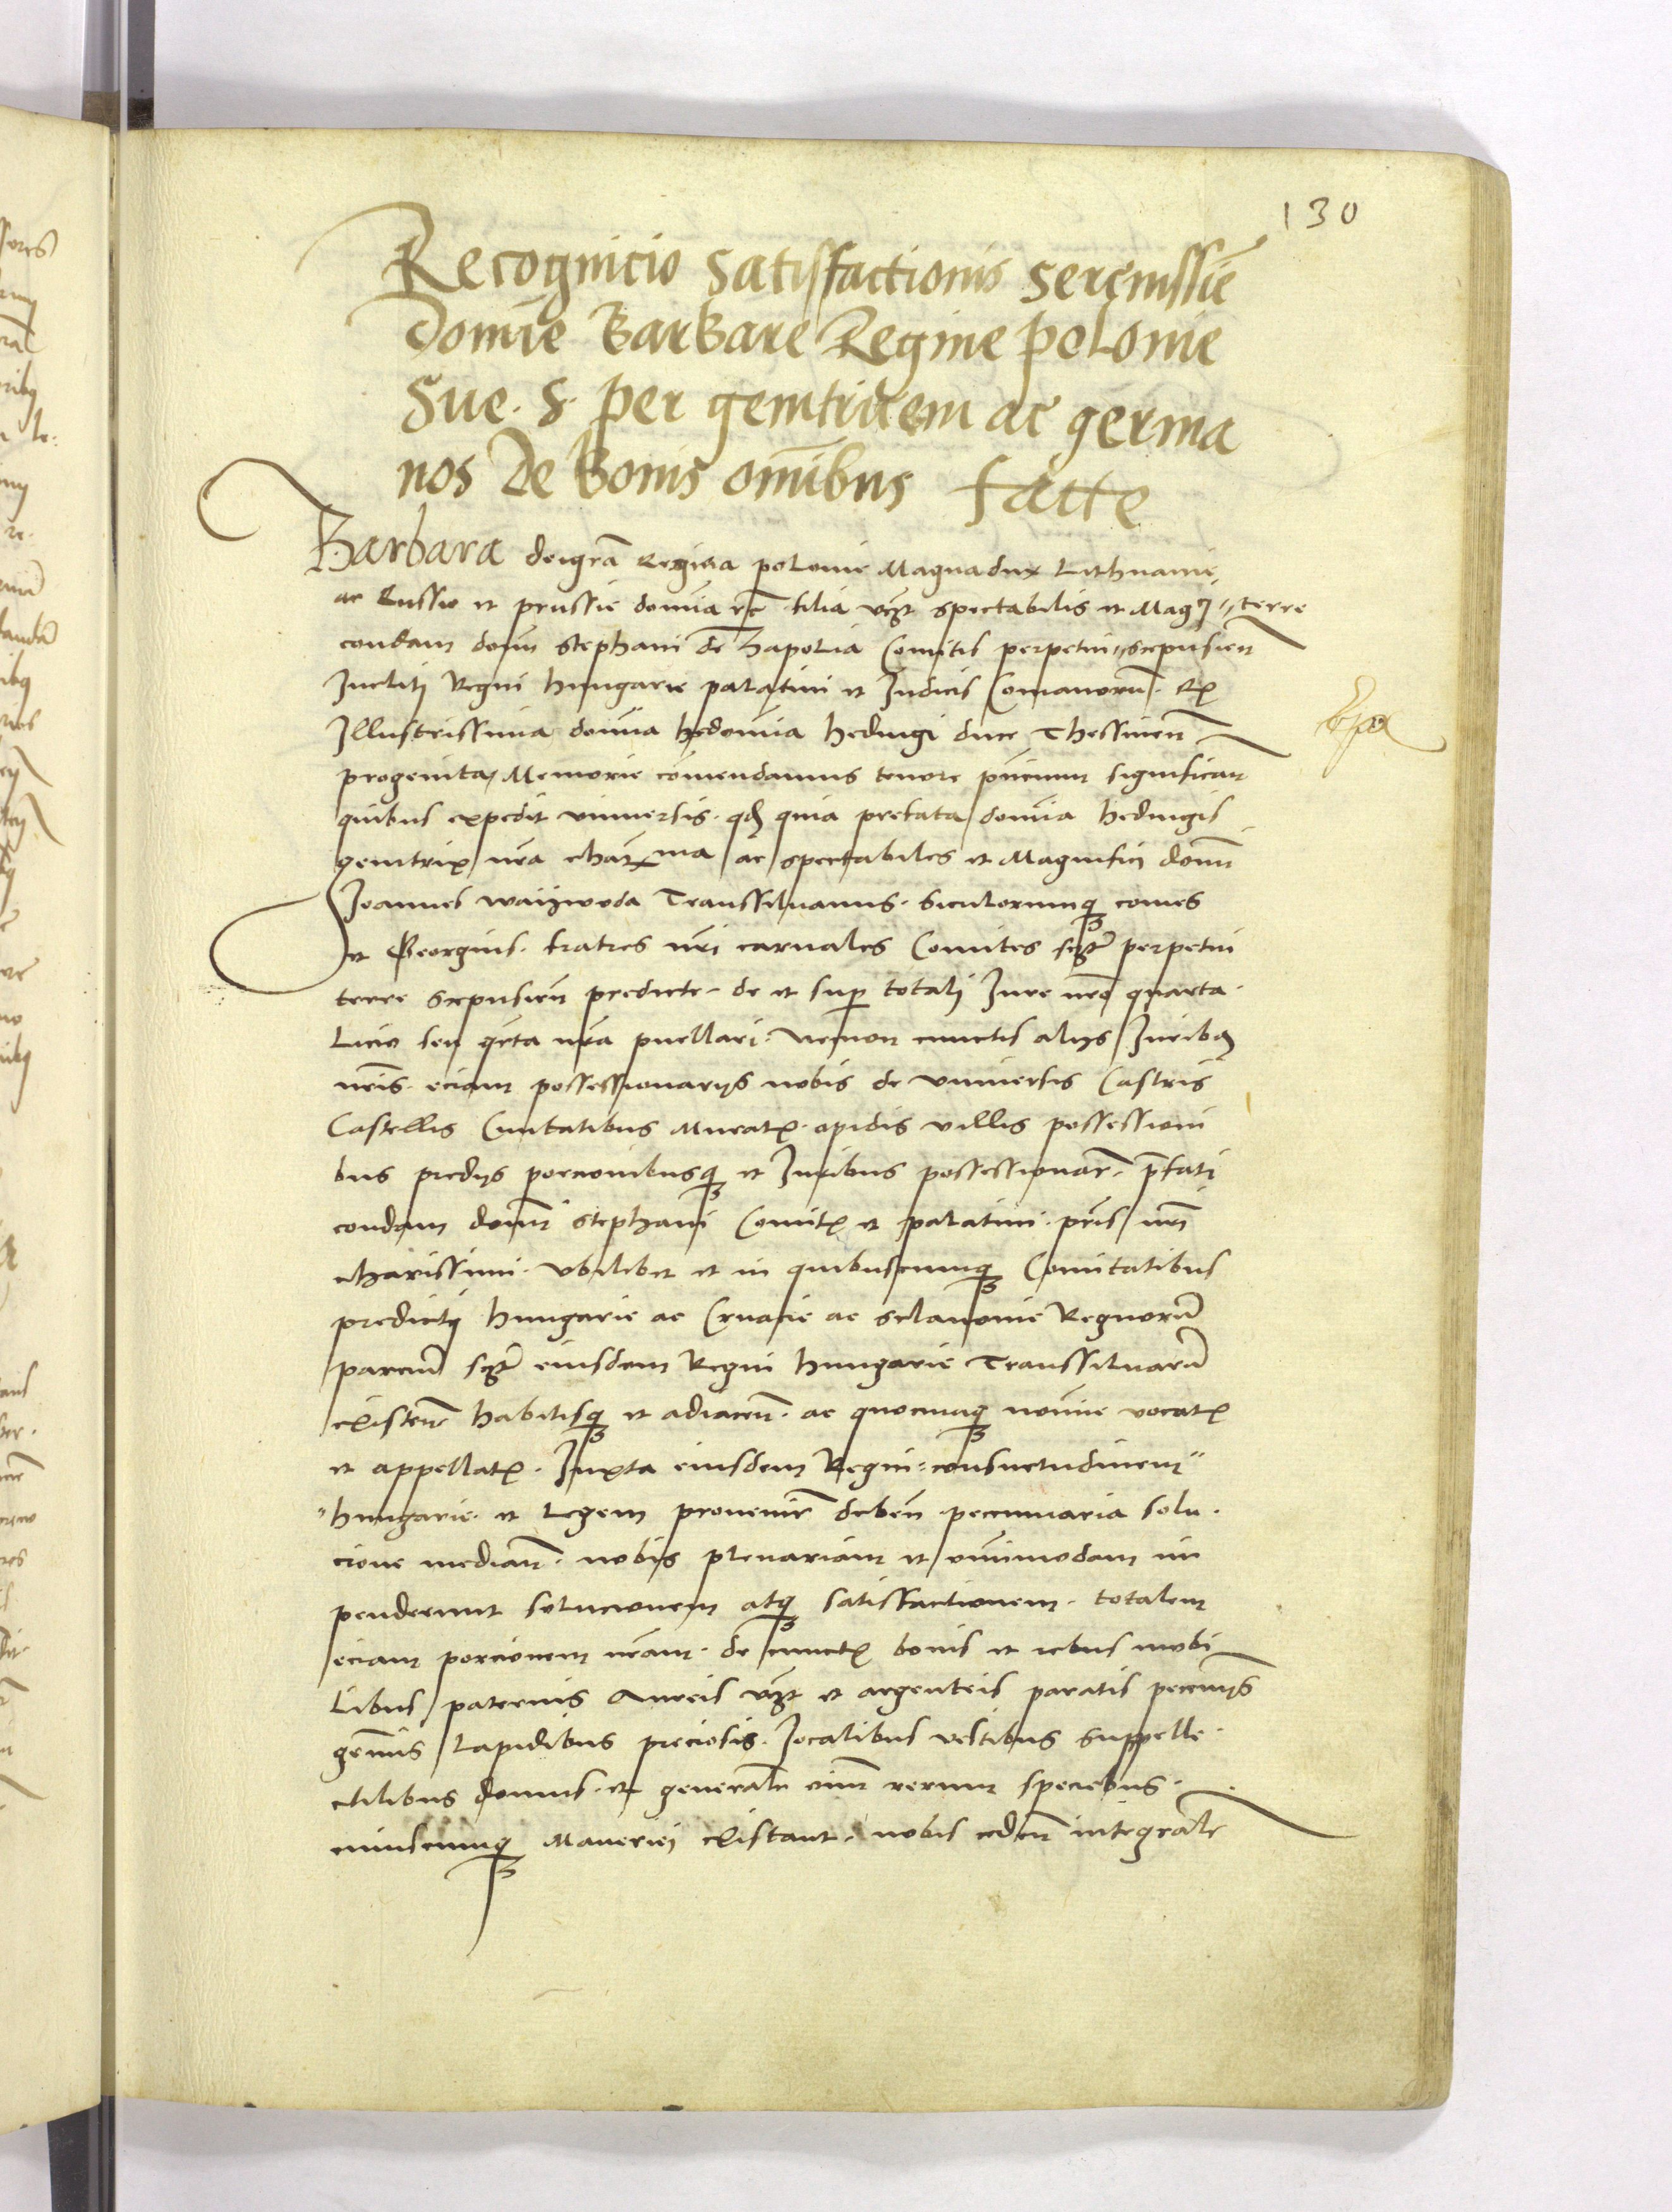 130
Recognicio satisfactionis serenissie
Domie Barbare Regine polonie
Sue. S. per genitricem ac germa
nos De bonis omibus facte
Barbara deigrã Regina polonie Magnadux Lithuanie,
ac Russie et prussie domia rc filia vꝫt spectabilis et Magci
condam domi Stephani de Zapolia Comitis perpetui "terre scepusien
Incliti Regni hungarie palatini et Iudicis Comanorum. Ex
Illustrissima domia hedwigi duce Thessinen
progenita, Memorie comendamus tenore pncium significan
quibus expedit vniuersis. qd quia prefata domia hedwigis
genitrix nra charma ac spectabiles et Magnifici domi
Joannes waijwoda Transsiluanus. Siculorumqꝫ comes
et Georgius. fratres nri carnales Comites sꝫr perpetui
terre scepusien predicte. de et super totali Iure nro quarta.
Licio seu qrta nra puellari. necnon cunctis alijs Iuribꝫ
nris. eciam possessionarijs nobis de vniuersis Castris
Castellis Ciuitatibus Muratx. opidis villis possessioni
bus predijs porcionibusqꝫ et Iuribus possessionar. pfati
condam domi Stephani Comitx et palatini. pris nri
charissimi. vbilibet et in quibuscumqꝫ Comitatibus
predicti hungarie ac Croacie ac sclauonie Regnorum
parcium sꝫr eiusdem Regni hungarie Transsiluanarum
existen habitisqꝫ et adiacen. ac quocumqꝫ nomine vocatx
et appellatx. Iuxta eiusdem Regni consuetudinem"
"hungarie. et Legem prouenire deben pecuniaria solu.
cione median. nobis plenariam et omnimodam im
penderunt solucionem atqꝫ satisfactionem. totalem
eciam porcionem nram. de cunctx bonis et rebus mobi
libus paternis Aureis vꝫt et argenteis paratis pecunijs
gemis Lapidibus preciosis. Jocalibus vestibus suppelle.
ctilibus domus. et generale oim rerum speciebus.
cuiuscumqꝫ Maneriei existant. nobis ceden integrale